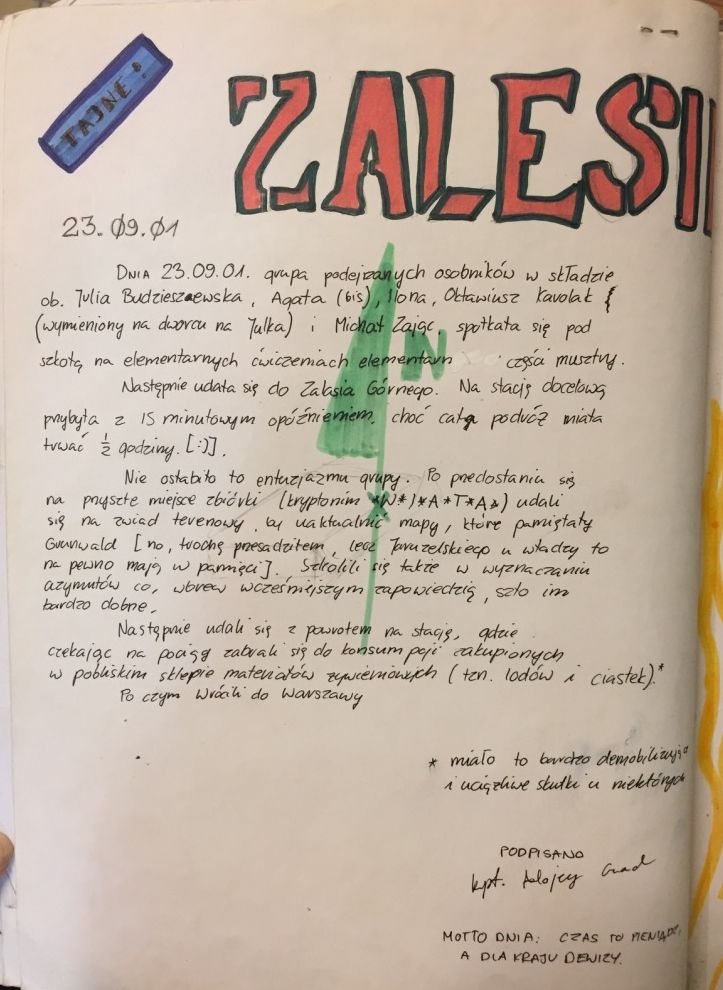 TAJNE!
ZALESI
23.09.01
DNIA 23.09.01. grupa podejrzanych osobników w składzie
ob. Julia Budzieszewska, Agata (bis), Ilona, Oktawiusz Kavolak
(wymieniony na dworcu na Julka) i Michał Zając, spotkała się pod
szkołą na elementarnych ćwiczeniach elementarn części musztry.
Następnie udała się do Zalesia Górnego. Na stację docelową
przybyła z 15 minutowym opóźnieniem, choć cała podróż miała
trwać ½ godziny. [:)].
Nie osłabiło to entuzjazmu grupy. Po przedostaniu się
na przyszłe miejsce zbiórki (kryptonim *W*)*A*T*A*) udali
się na zwiad terenowy by uaktualnić mapy, które pamiętały
Grunwald [no, trochę przesadziłem, lecz Jaruzelskiego u władzy to
na pewno mają w pamięci]. Szkolili się także w wyznaczaniu
azymutów co, wbrew wcześniejszym zapowiedzią, szło im
bardzo dobrze.
Następnie udali się z powrotem na stację, gdzie
czekając na pociąg zabrali się do konsumpcji zakupionych
w pobliskim sklepie materiałów żywieniowych (tzn. lodów i ciastek).*
Po czym wrócili do Warszawy
* miało to bardzo demobilizują
i uciążliwe skutki u niektórych
PODPISANO
kpt.
MOTTO DNIA: CZAS TO PIENIĄDZ,
A DLA KRAJU DEWIZY.